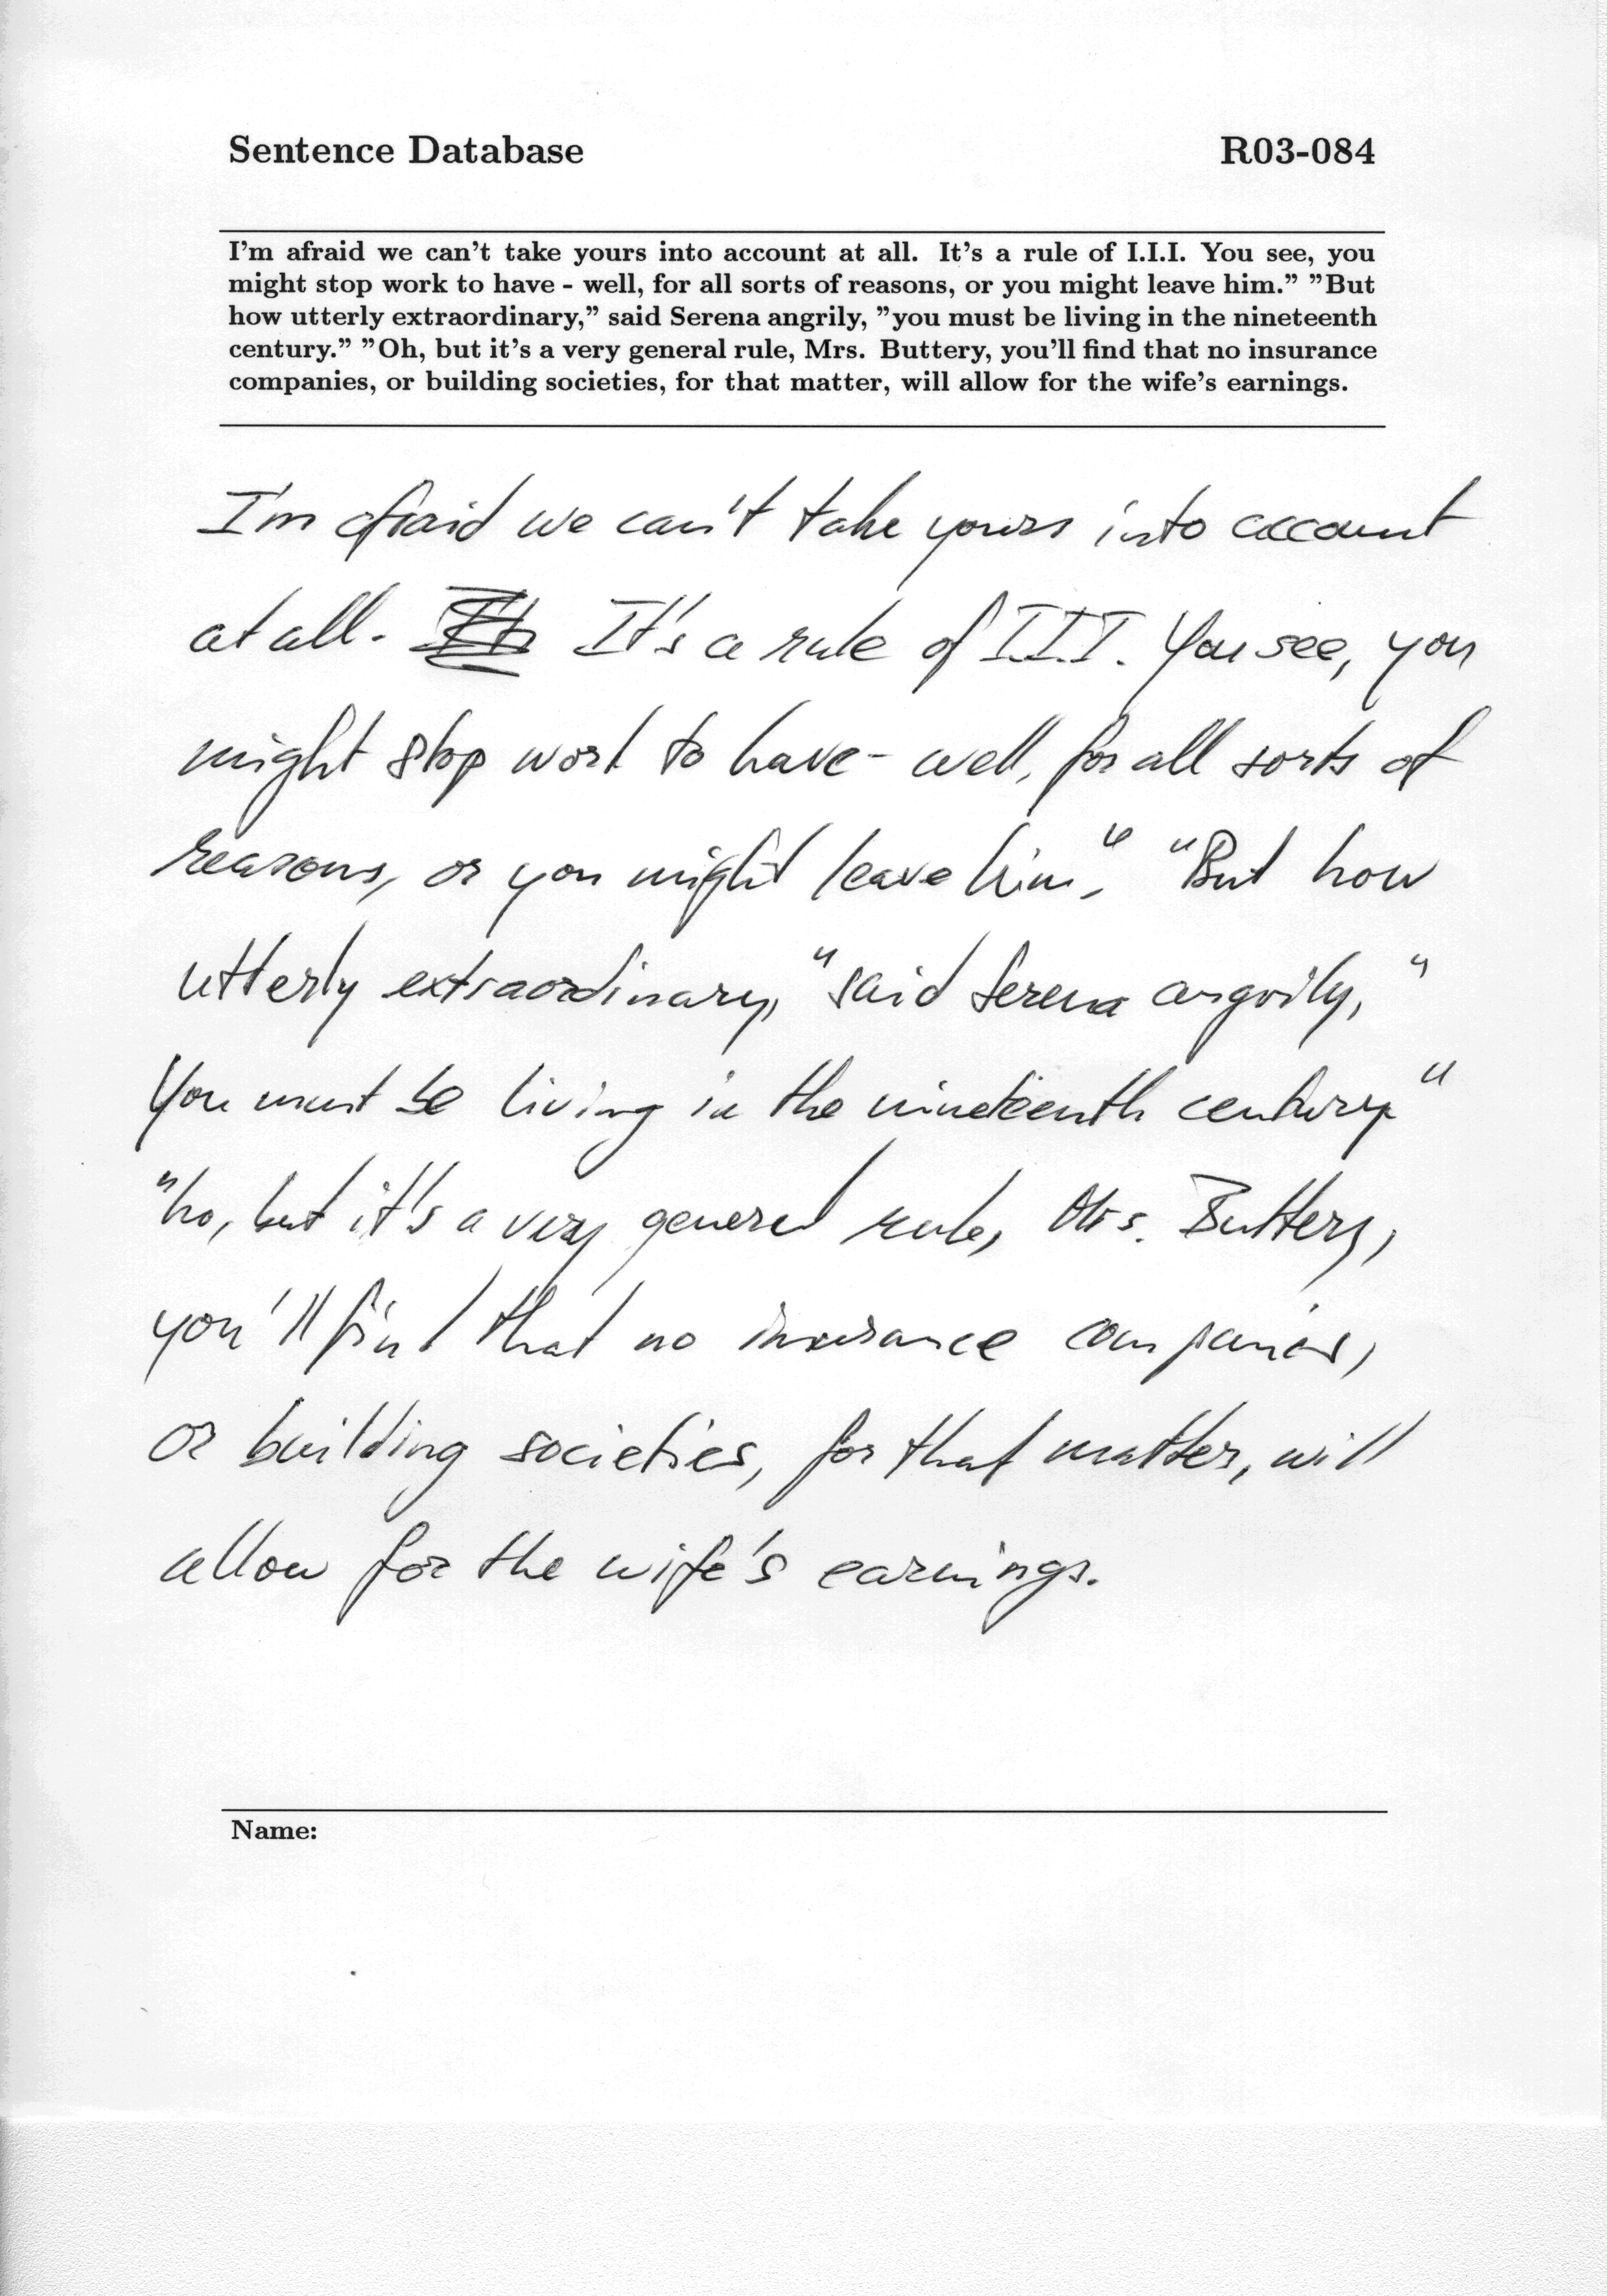 Sentence Database R03-084
I'm afraid we can't take yours into account at all. It's a rule of I.I.I. You see, you
might stop work to have - well, for all sorts of reasons, or you might leave him.” ”But
how utterly extraordinary,” said Serena angrily, ”you must be living in the nineteenth
century.” ”Oh, but it's a very general rule, Mrs. Buttery, you'll find that no insurance
companies, or building societies, for that matter, will allow for the wife's earnings.
I'm afraid we can't take yours into account
at all. It's a rule of I.I.I. You see, you
might stop work to have - well, for all sorts of
reasons, or you might leave him." "But how
utterly extraordinary," said Serena angrily, "
You must be living in the nineteenth century"
"ho, but it's a very general rule, Mrs. Buttery,
you'll find that no insurance companies,
or building societies, for that matter, will
allow for the wife's earnings.
Name: